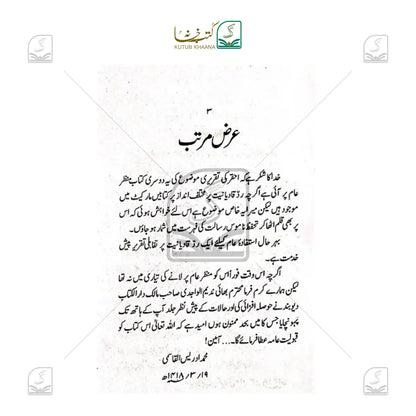 کتب خانہ
KUTUB KHAANA
۳
عرض مرتب
خدا کا شکر ہے کہ احقر کی تقریری موضوع کی یہ دوسری کتاب منظر
عام پر آئی ہے اگرچہ ردّ قادیانیت پر مختلف انداز پر کتابیں مارکیٹ میں
موجود ہیں لیکن میرا یہ خاص موضوع ہے اس لئے خواہش ہوئی کہ اس
پر بھی قلم اٹھا کر تحفظ ناموس رسالت کی فہرست میں شمار ہو جاؤں۔
بہر حال استفادۂ عام کیلئے ایک ردّ قادیانیت پر تقابلی تقریر پیش
خدمت ہے۔
اگرچہ اس وقت فوراً اس کو منظر عام پر لانے کی تیاری میں نہ تھا
لیکن ہمارے کرم فرما محترم بھائی ندیم الواجدی صاحب مالک دارالکتاب
دیوبند نے حوصلہ افزائی کی اور حالات کے پیش نظر جلد آپ کے ہاتھ تک
پہونچایا جس کا میں بیحد ممنون ہوں امید ہے کہ اللہ تعالیٰ اس کتاب کو
قبولیت عامہ عطا فرمائے گا۔... آمین!
محمد ادریس القاسمی
۱۹/۳/۱۴۱۸ھ